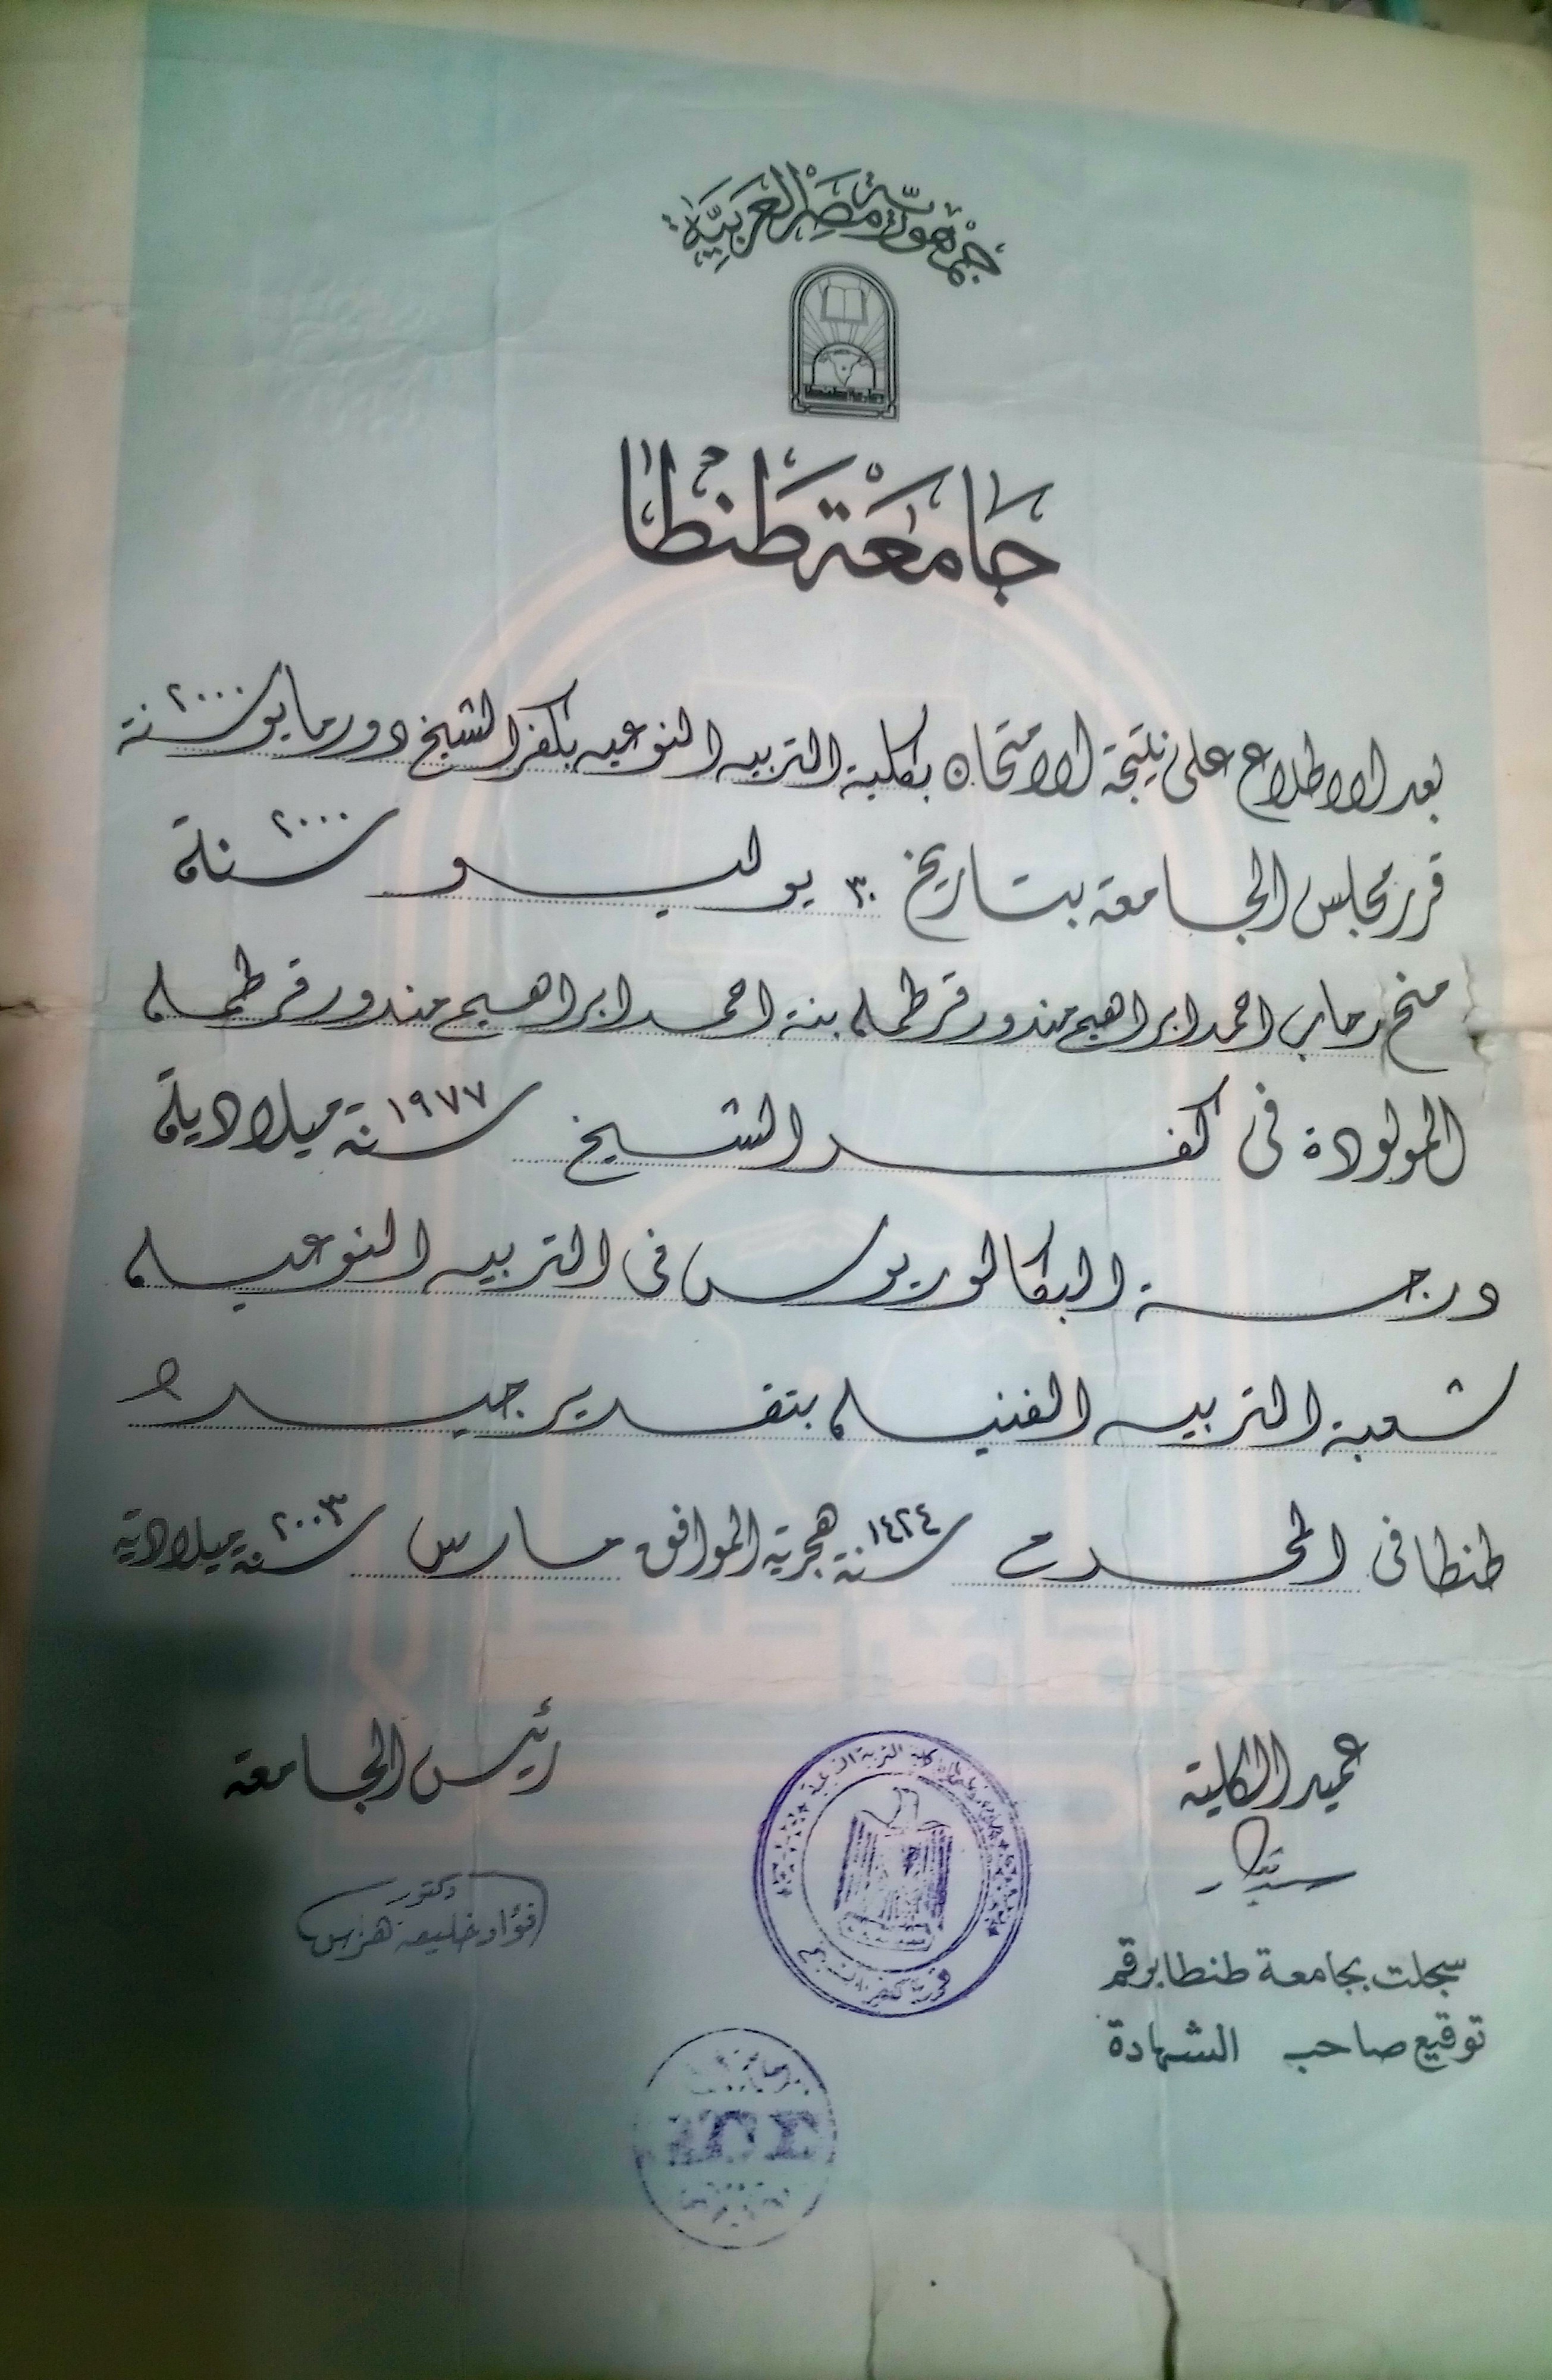 جمهورية مصر العربية
جامعة طنطا
جامعة طنطا
بعد الاطلاع على نتيجة الامتحان بكلية التربيه النوعيه بكفر الشيخ دور مايو سنة ٢٠٠٠
قرر مجلس الجامعة بتاريخ ٣٠ يوليو سنة ٢٠٠٠
منح رحاب احمد ابراهيم مندور قرطمه بنة احمد ابراهيم مندور قرطمه
المولودة فى كفر الشيخ سنة ١٩٧٧ ميلادية
درجة البكالوريوس فى التربيه النوعيه
شعبة التربيه الفنيه بتقدير جيد
طنطا فى المحرم سنة ١٤٢٤ هجرية الموافق مارس سنة ٢٠٠٣ ميلادية
عميد الكلية
رئيس الجامعة
دكتور
فؤاد خليفة هراس
كلية التربية النوعية
سجلت بجامعة طنطا برقم
توقيع صاحب الشهادة